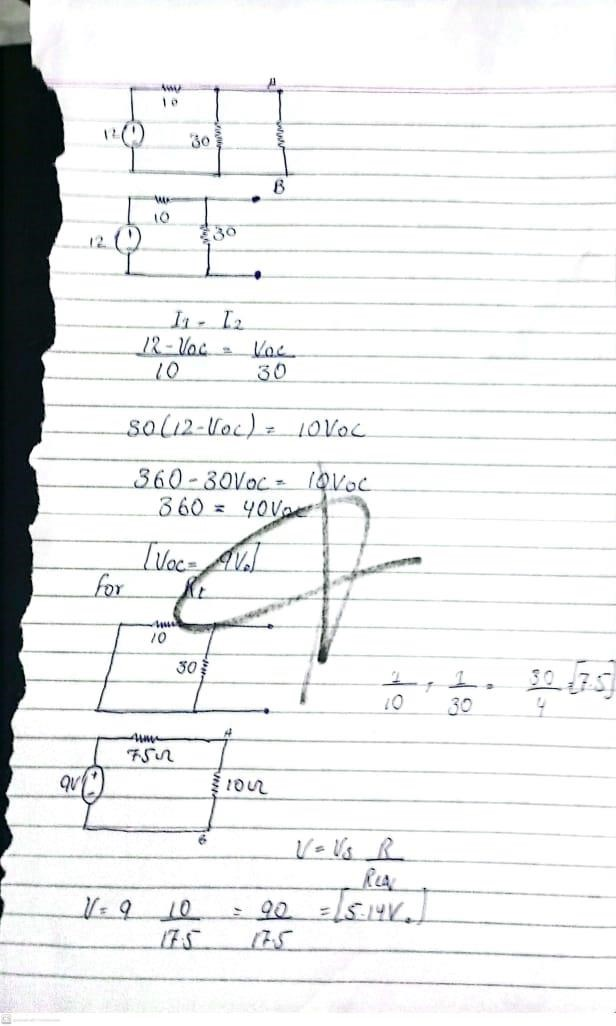 10
A
12
30
B
10
12
30
I1 = I2
12-Voc = Voc
10 30
30(12-Voc) = 10Voc
360-30Voc = 10Voc
360 = 40Voc
[Voc= 9V.]
for Rt
10
30
1 + 1 = 30 = [7.5]
10 30 4
75Ω
A
9V
10Ω
B
V = Vs R
Req
V = 9 10 = 90 = [5.14V.]
17.5 17.5